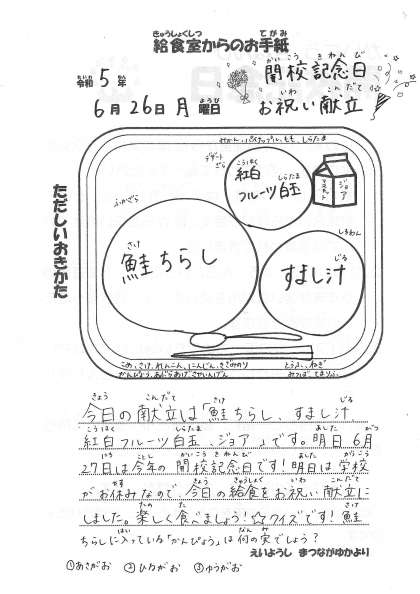 給食室からのお手紙
令和5年
6月26日月曜日
開校記念日
お祝い献立
ただしいおきかた
みかん、パイナップル、もも、しらたま
デザートざら
紅白
フルーツ白玉
ジョア
マスカット
ふかざら
鮭ちらし
しるわん
すまし汁
こめ、さけ、れんこん、にんじん、きざみのり
かんぴょう、あぶらあげ、さやいんげん
とうふ、ねぎ
みつば、てまりふ
今日の献立は「鮭ちらし、すまし汁
紅白フルーツ白玉、ジョア」です。明日、6月
27日は今年の開校記念日です!明日は学校
がお休みなので、今日の給食をお祝い献立に
しました。楽しく食べましょう!☆クイズです!鮭
ちらしに入っている「かんぴょう」は何の実でしょう?
えいようし まつながゆかより
①あさがお ②ひるがお ③ゆうがお